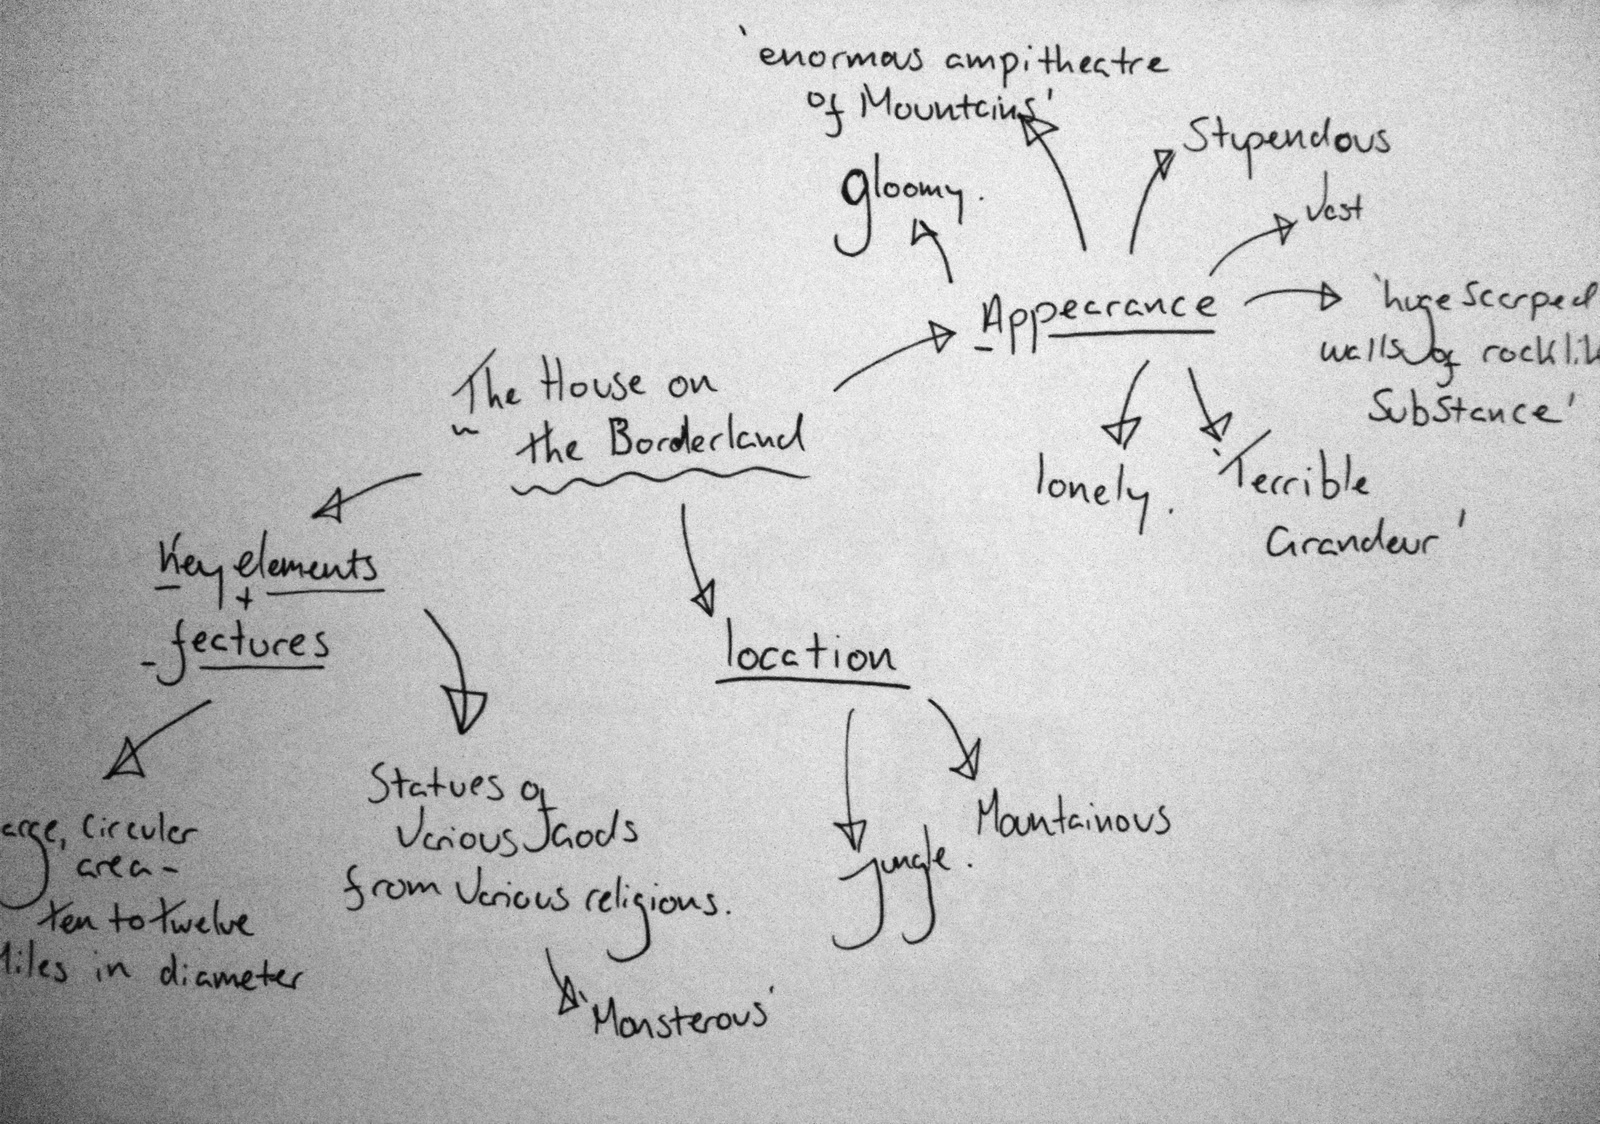 'enormous ampitheatre
of Mountains'
gloomy.
Stupendous
Vast
Appearance
'huge Scarped
walls of rocklik
Substance'
lonely.
'Terrible
Grandeur'
The House on
the Borderland
Key elements
+
features
location
arge, Circular
area -
ten to twelve
Miles in diameter
Statues of
Various Gods
from Various religions.
'Monsterous'
jungle.
Mountainous